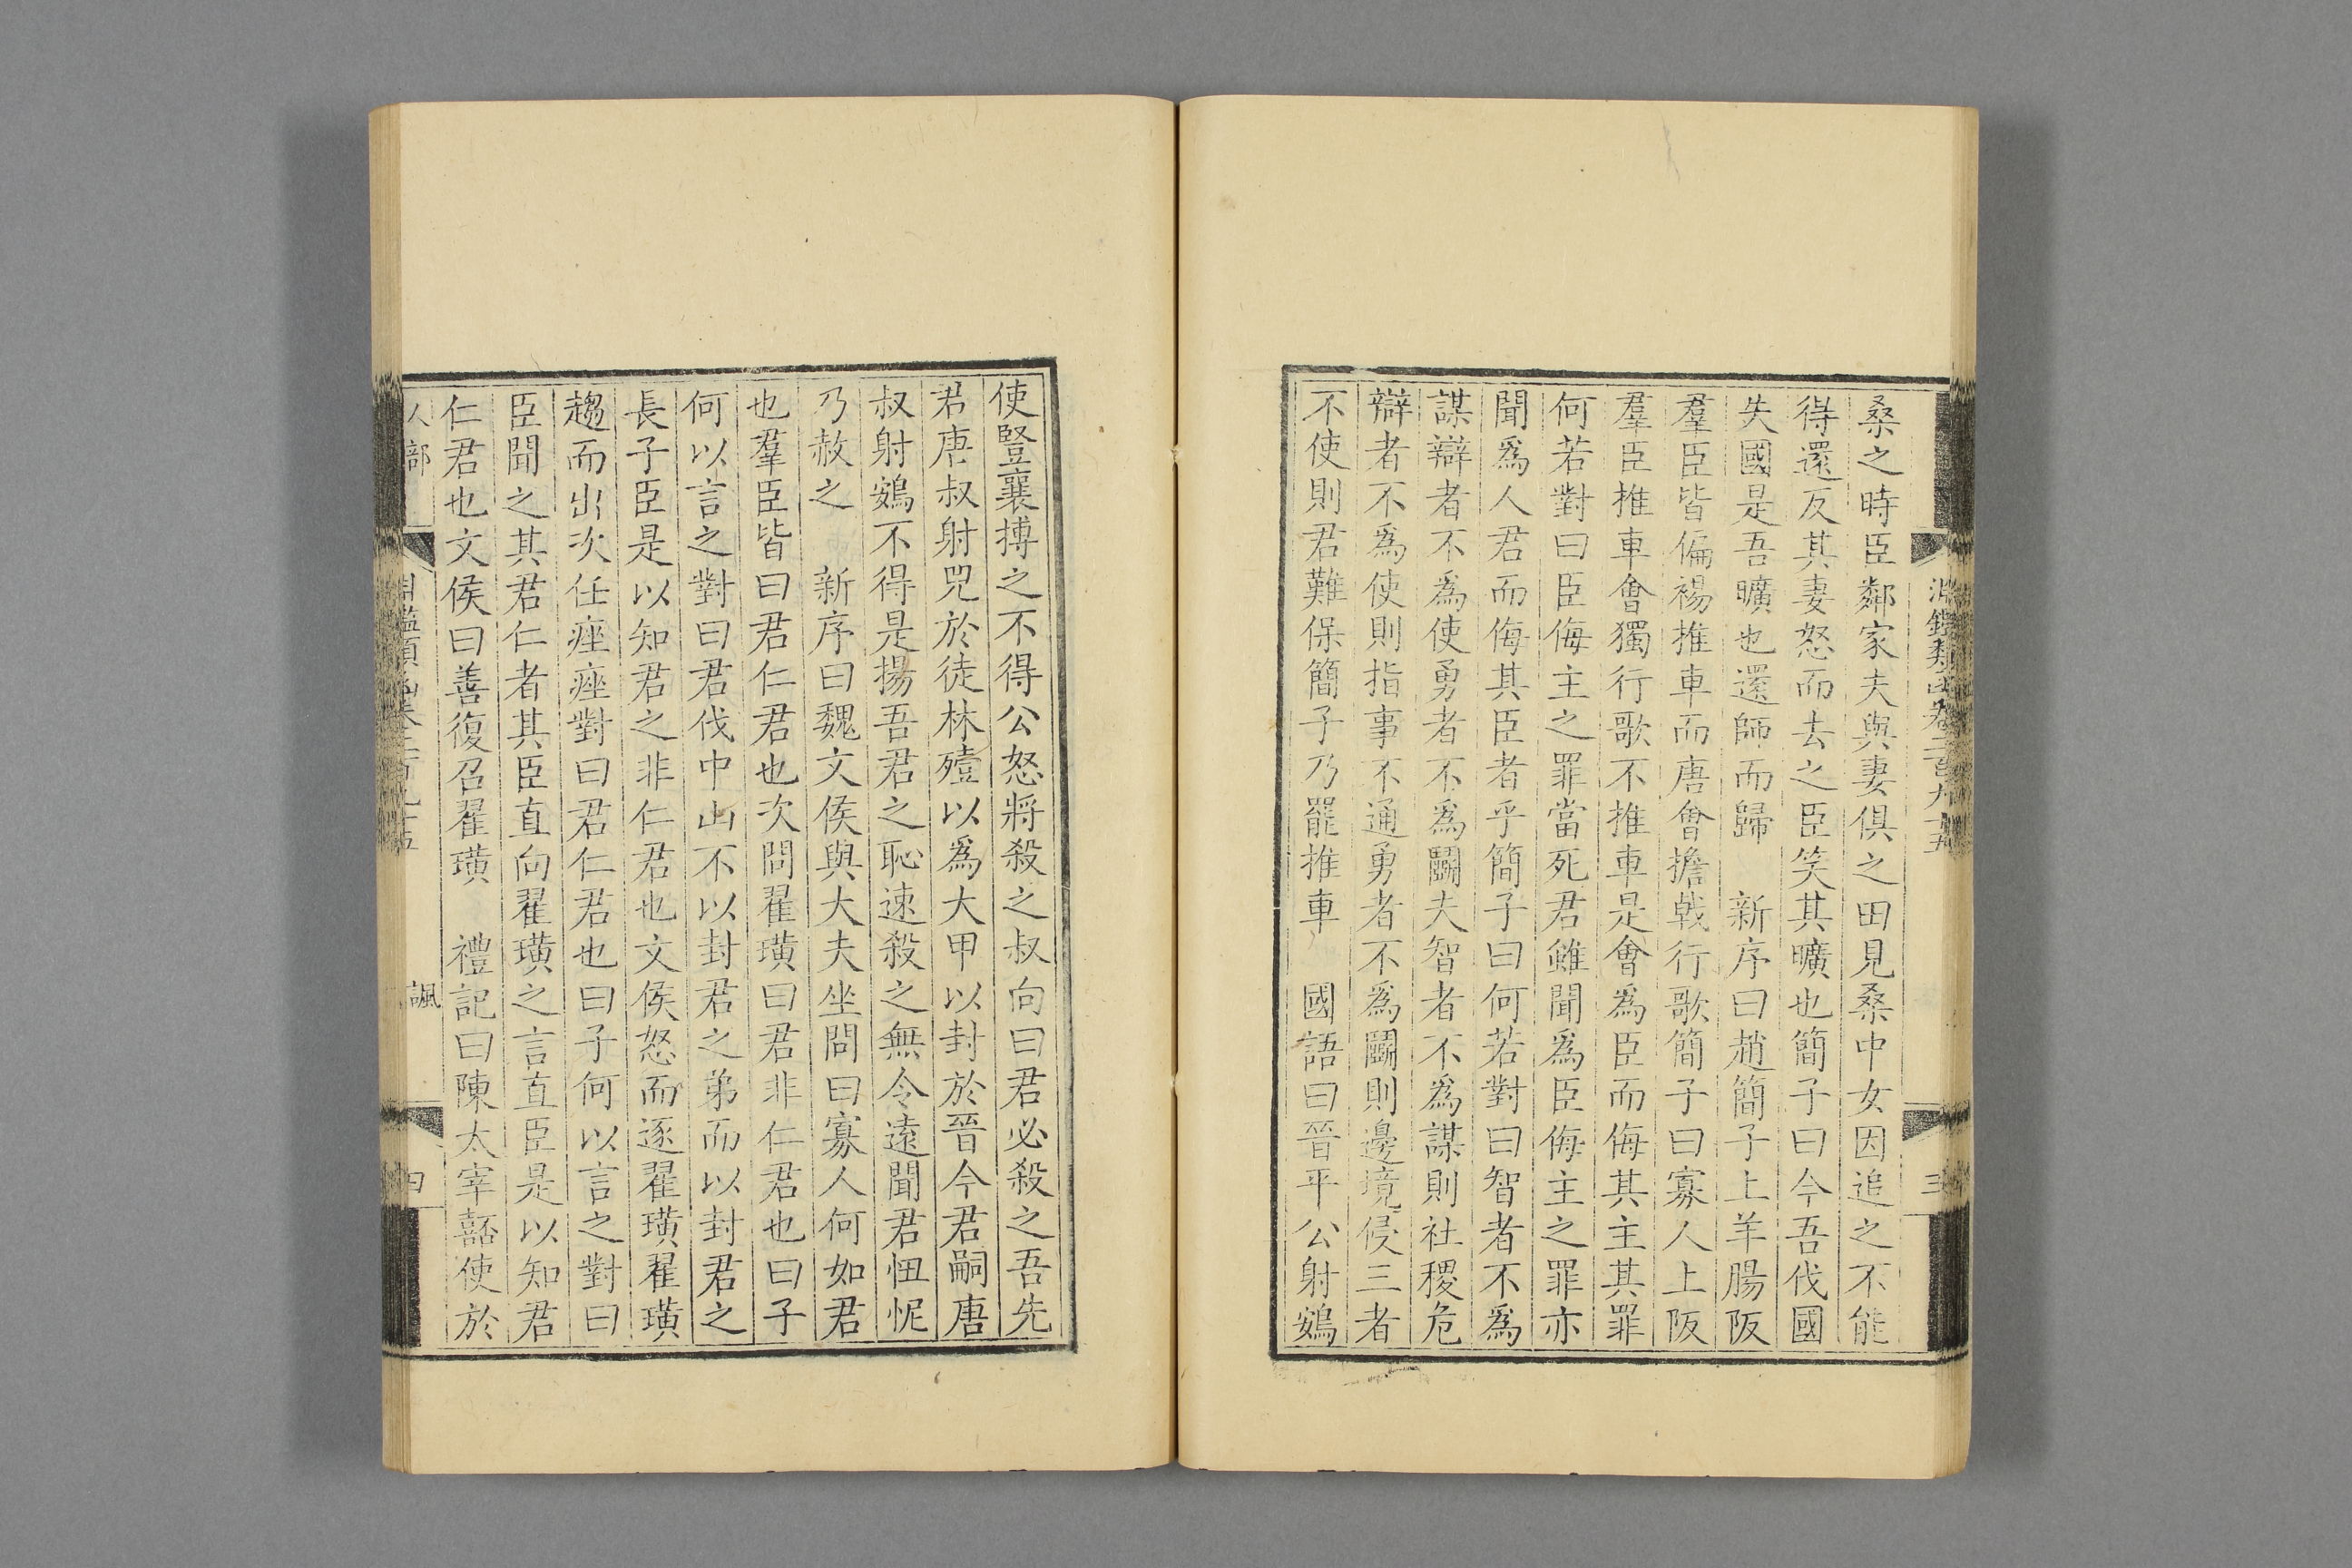 淵鑑類函卷二百九十五
三
桑之時臣鄰家夫與妻俱之田見桑中女因追之不能
得還反其妻怒而去之臣笑其曠也簡子曰今吾伐國
失國是吾曠也還師而歸　新序曰趙簡子上羊腸阪
羣臣皆偏裼推車而唐會擔戟行歌簡子曰寡人上阪
羣臣推車會獨行歌不推車是會為臣而侮其主其罪
何若對曰臣侮主之罪當死君雖聞為臣侮主之罪亦
聞為人君而侮其臣者乎簡子曰何若對曰智者不為
謀辯者不為使勇者不為鬭夫智者不為謀則社稷危
辯者不為使則指事不通勇者不為鬭則邊境侵三者
不使則君難保簡子乃罷推車　國語曰晉平公射鴳
使豎襄搏之不得公怒將殺之叔向曰君必殺之吾先
君唐叔射兕於徒林殪以為大甲以封於晉今君嗣唐
叔射鴳不得是揚吾君之恥速殺之無令遠聞君忸怩
乃赦之　新序曰魏文侯與大夫坐問曰寡人何如君
也羣臣皆曰君仁君也次問翟璜曰君非仁君也曰子
何以言之對曰君伐中山不以封君之弟而以封君之
長子臣是以知君之非仁君也文侯怒而逐翟璜翟璜
趨而出次任痤痤對曰君仁君也曰子何以言之對曰
臣聞之其君仁者其臣直向翟璜之言直臣是以知君
仁君也文侯曰善復召翟璜　禮記曰陳太宰嚭使於
人部
諷
四